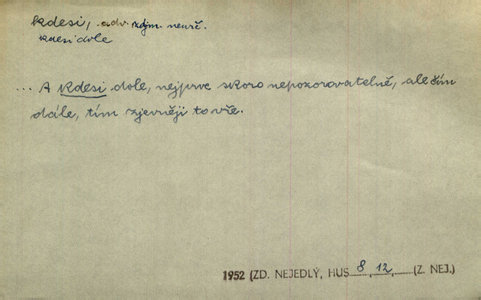 kdesi, adv. zájm. neurč.
kdesi dole
... A kdesi dole, nejprve skoro nepozorovatelně, ale čím
dále, tím zjevněji to vře.
1952 (ZD. NEJEDLÝ, HUS 8, 12, (Z. NEJ.)